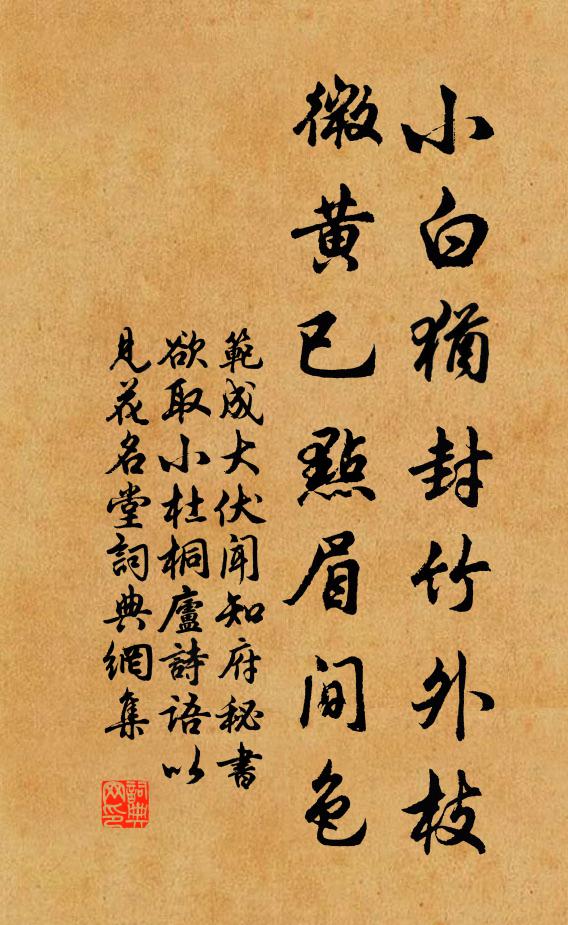 小白猶封竹外枝
微黄已點眉間色
範成大伏聞知府秘書
欲取小杜桐廬詩語以
見花名堂詞典網集
詞典網印